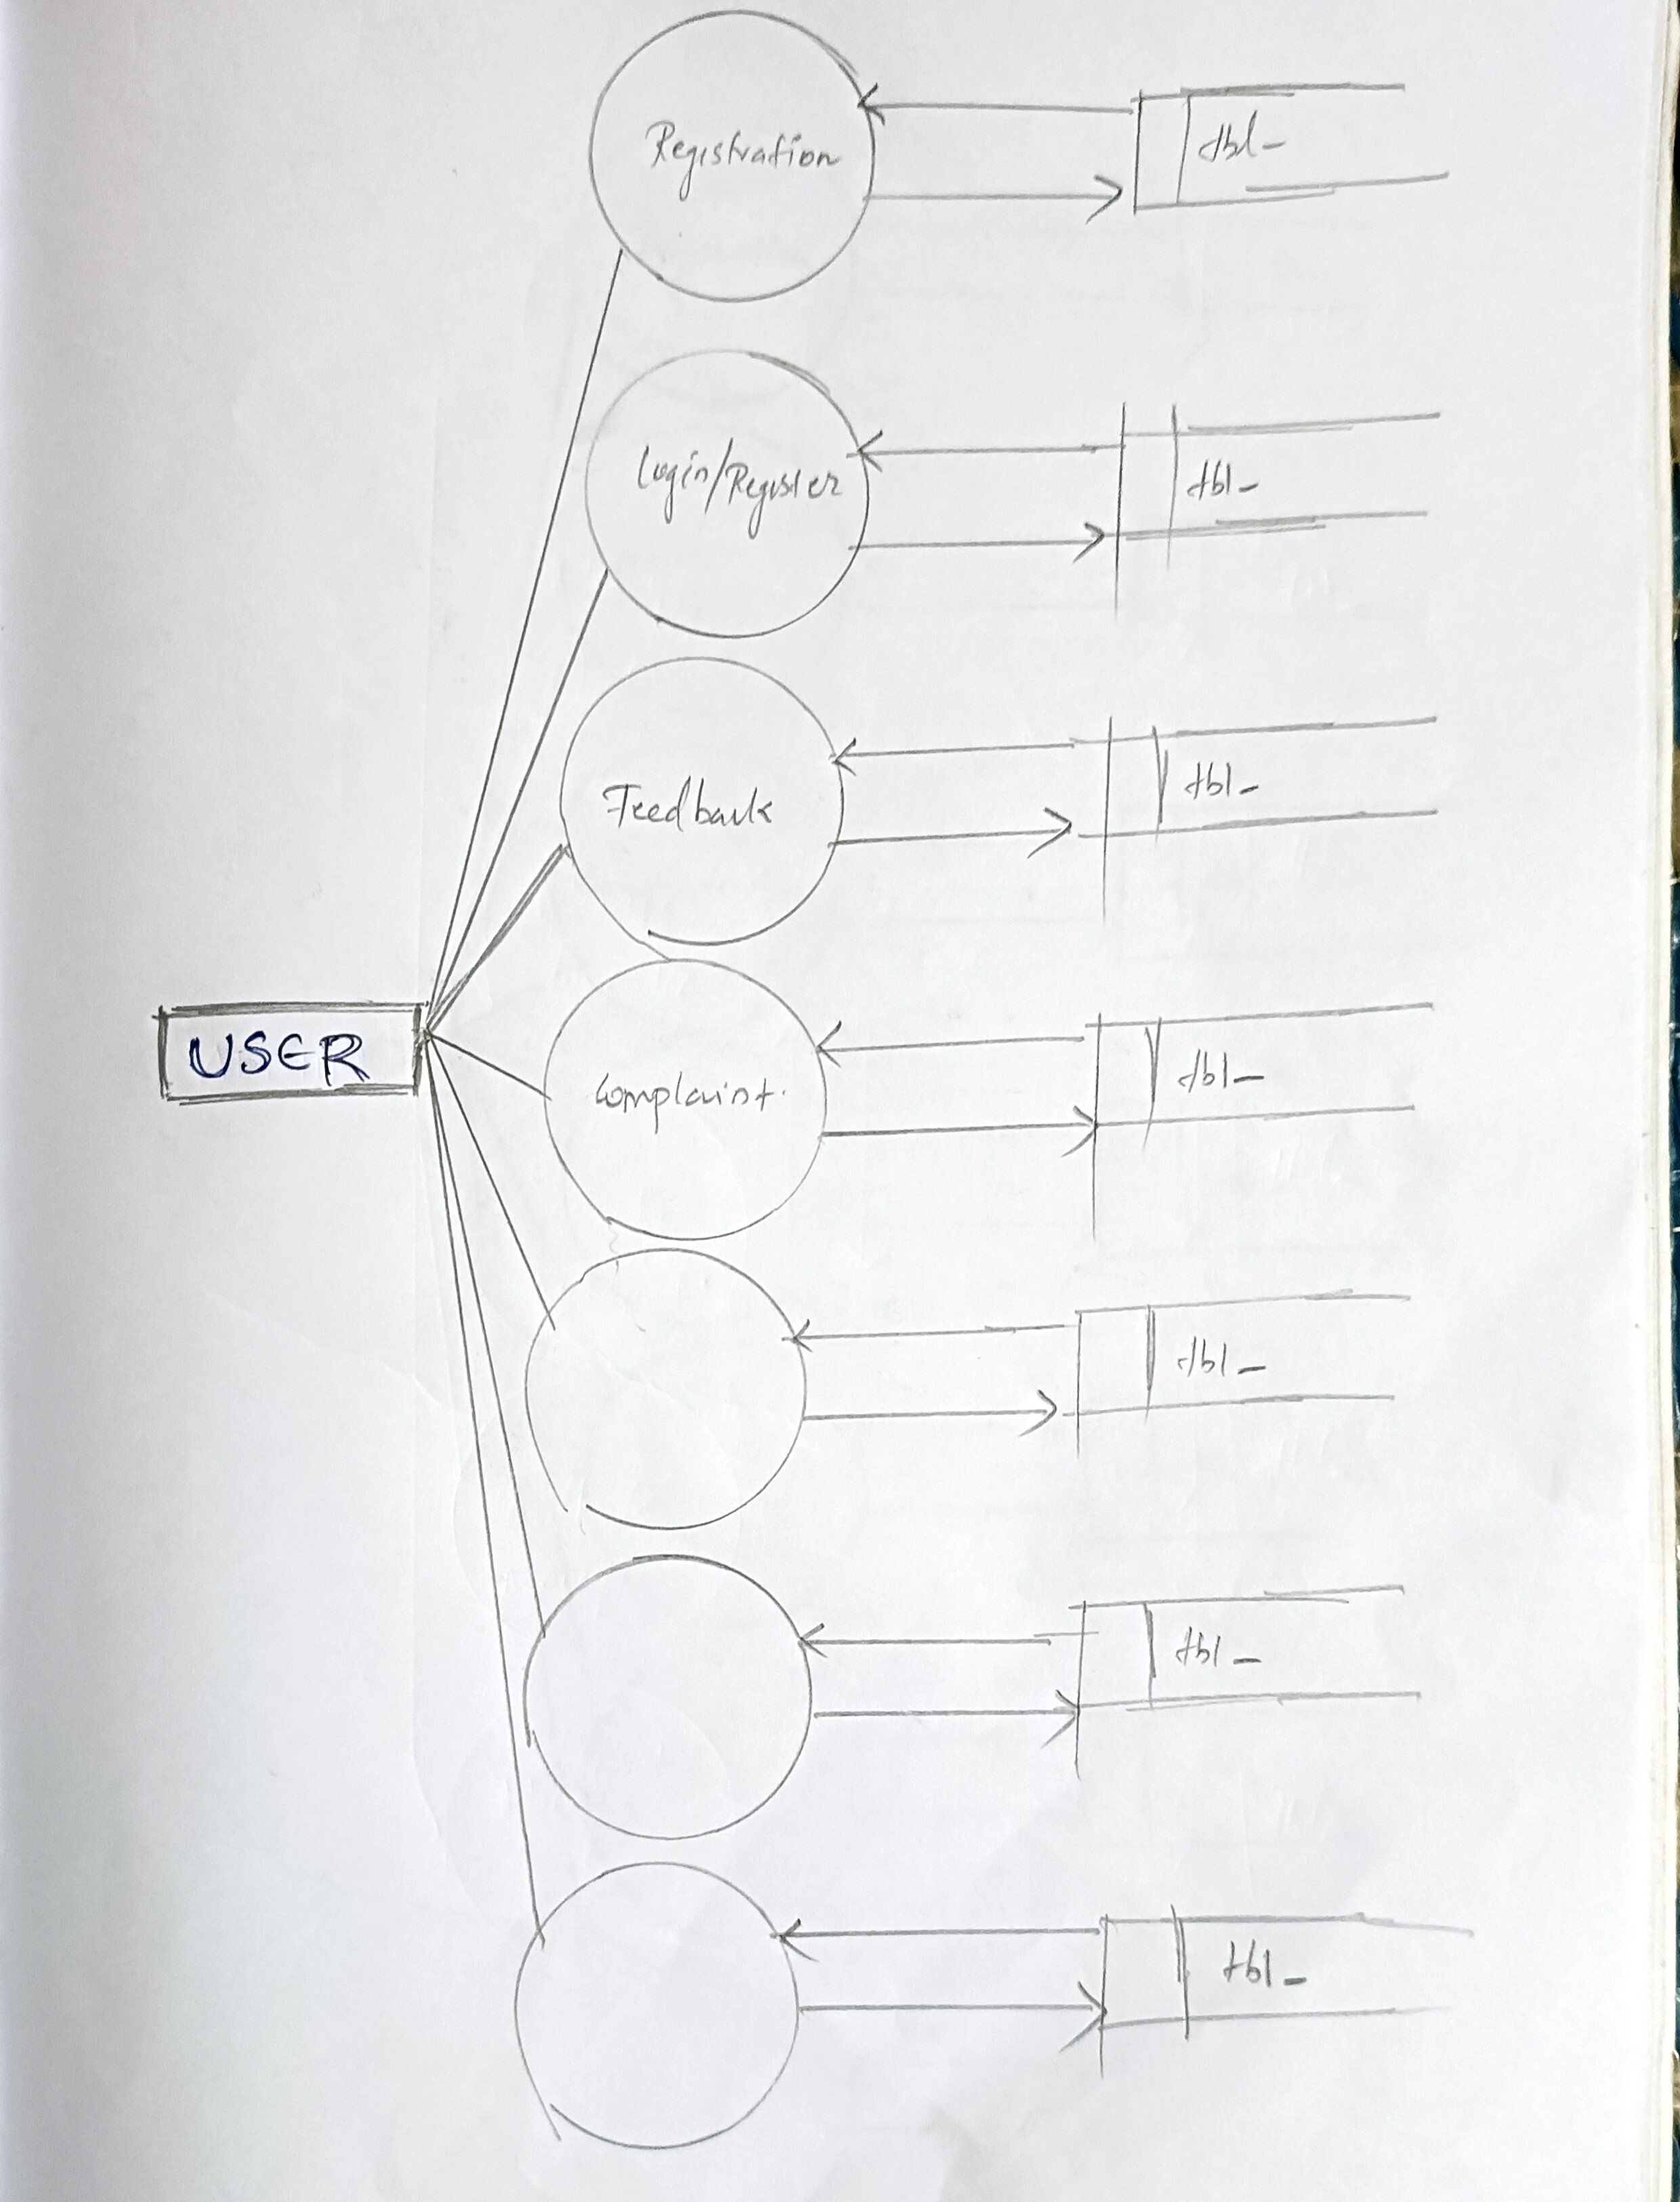 Registration
tbl_
Login/Register
tbl_
Feedback
tbl_
USER
Complaint.
tbl_
tbl_
tbl_
tbl_